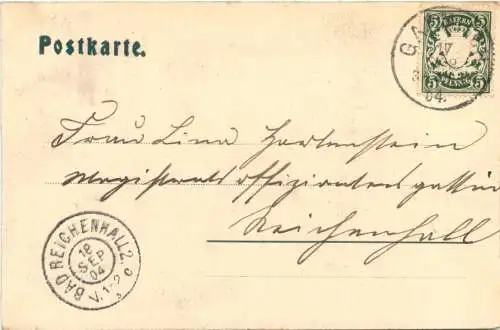 Postkarte.
BAYERN
5 5
5 5
PFENNIG
GA
17
04.
Frau Lina Hartenstein
Magistratsoffiziantensgattin
Reichenhall
BAD REICHENHALL 2.
18
SEP
04
V. 1-2